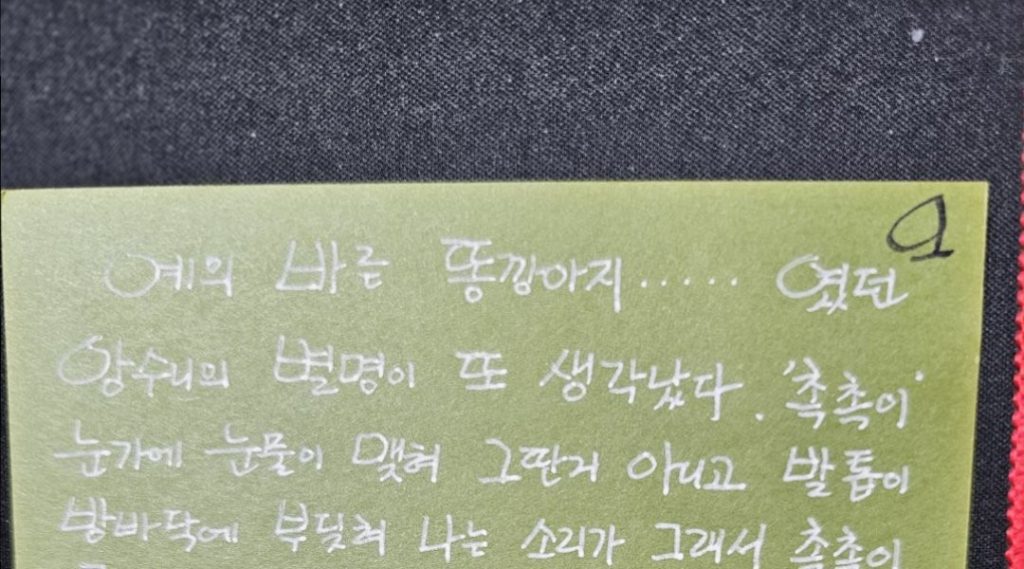 예의 바른 똥깡아지..... 였던
앙수니의 별명이 또 생각났다. '촉촉이'
눈가에 눈물이 맺혀 그딴거 아니고 발톱이
방바닥에 부딪혀 나는 소리가 그래서 촉촉이